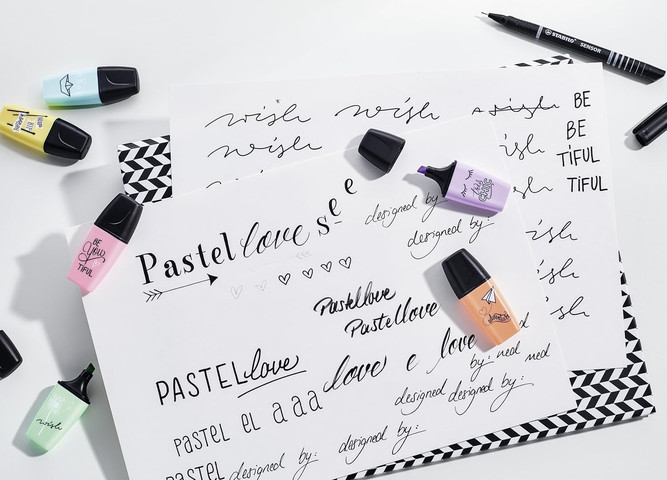 STABILO SENSOR
wish wish wish BE
wish wish BE
TiFUL
wish TiFUL
designed by:
designed by:
wish
wish
wish
Pastel love s e e
Pastellove
Pastellove
PASTELlove love e love
by: ned ned
PASTEL EL a a a designed designed by:
PASTEL designed by: designed by:
BE
YOU
TIFUL
wish